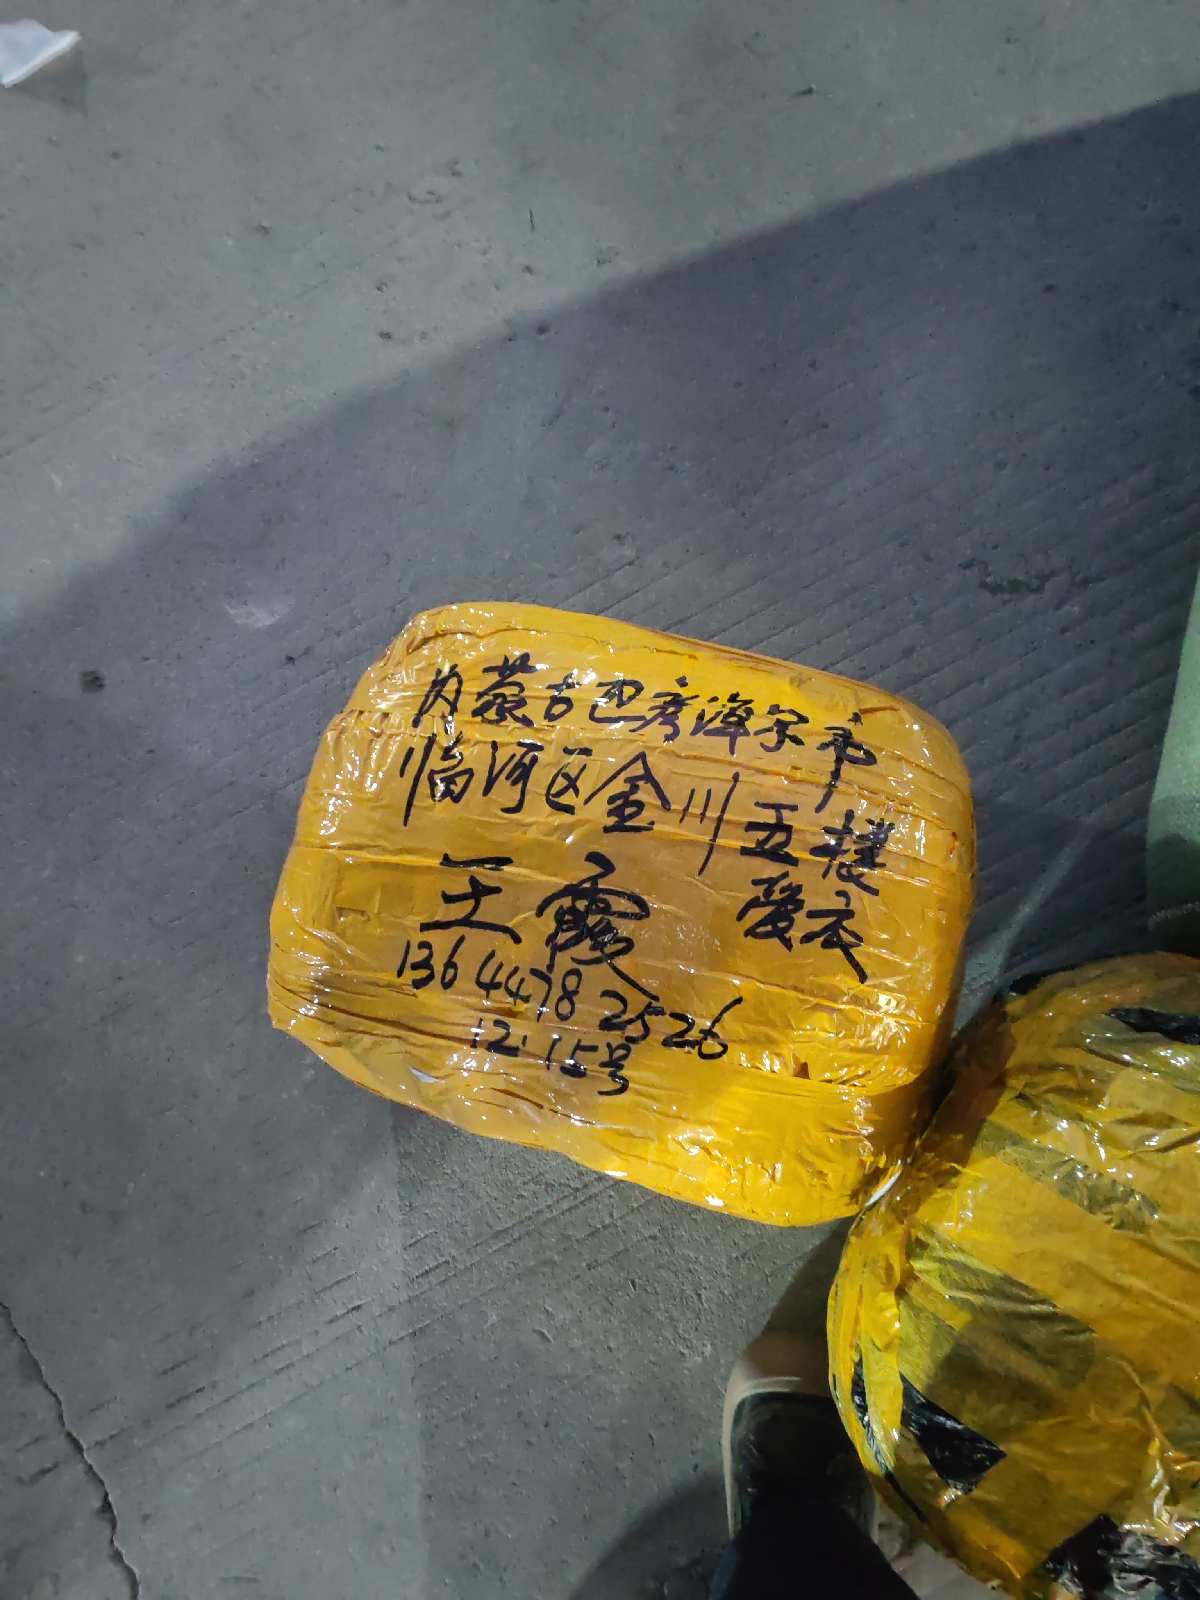 内蒙古巴彦淖尔市
临河区金川五楼
爱衣
王霞
136 4478 2526
12.15号